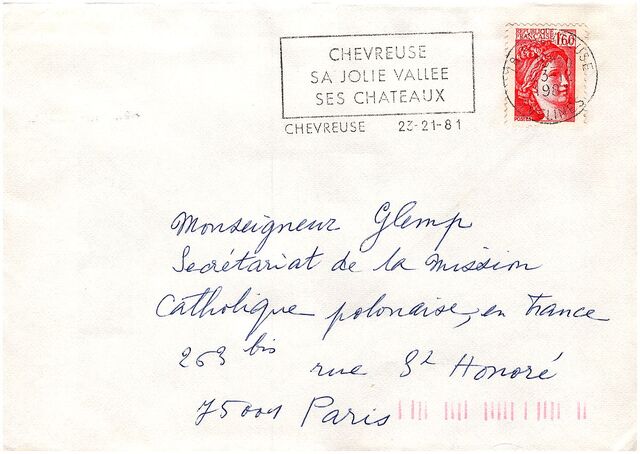 CHEVREUSE
SA JOLIE VALLEE
SES CHATEAUX
CHEVREUSE 23-21-81
REPUBLIQUE
FRANÇAISE
1,60
POSTES
Monseigneur Glemp
Secrétariat de la Mission
Catholique polonaise, en France
263 bis rue St Honoré
75001 Paris